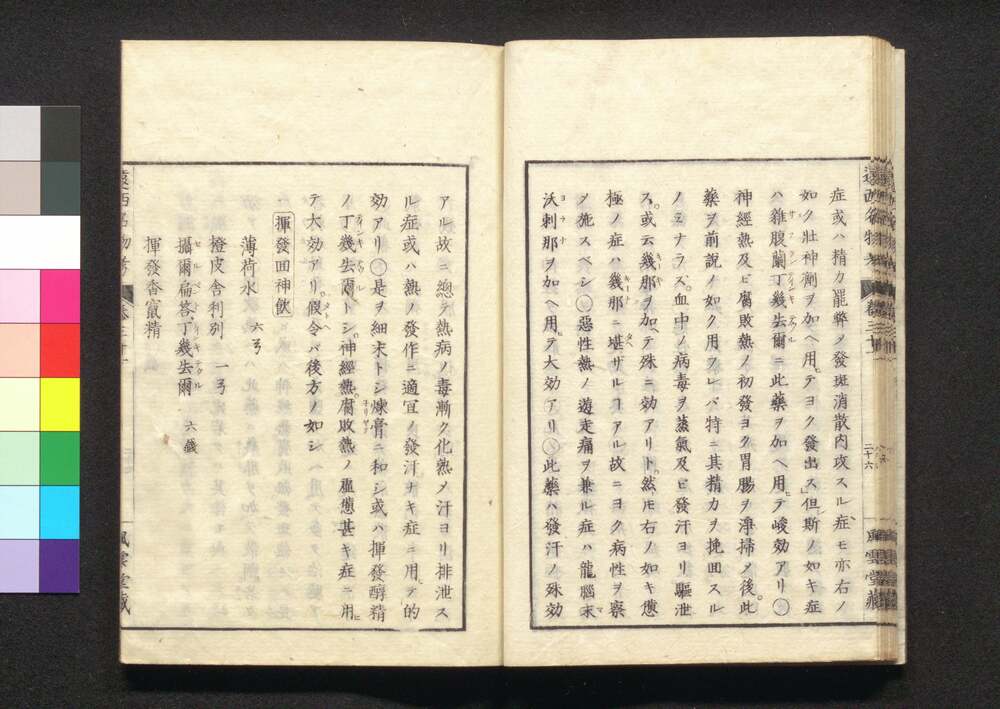 症或ハ精力罷弊メ發斑消散内攻スル症モ亦右ノ
如ク壯神劑ヲ加ヘ用テヨク發出ス但斯ノ如キ症
ハ雜腹蘭丁幾去爾ニ此藥ヲ加ヘ用テ峻効アリ〇
神經熱及ビ腐敗熱ノ初發ヨク胃腸ヲ淨掃メ後此
藥ヲ前說ノ如ク用フレバ特ニ其精力ヲ挽回スル
ノミナラス血中ノ病毒ヲ蒸氣及ビ發汗ヨリ驅泄
ス或云幾那ヲ加ヘテ殊ニ効アリト然モ右ノ如キ
極ノ症ハ幾那ニ堪ザルコアル故ニヨク病性ヲ察
メ施スベシ〇惡性熱ノ遊走痛ヲ兼ル症ハ龍腦末
沃剌那ヲ加ヘ用テ大効アリ〇此藥ハ發汗ノ殊効
遠西名物考 卷三十 二十六 風雲堂藏
アル故ニ總テ熱病ノ毒漸ク化熟メ汗ヨリ排泄ス
ル症或ハ熱ノ發作ニ適宜ノ發汗ナキ症ニ用ヲ的
効アリ〇是ヲ細末トシ煉膏ニ和シ或ハ揮發酒精
ノ丁幾去爾トシ神經熱腐敗熱ノ甚キ症ニ用
テ大効アリ假令バ後方ノ如シ
揮發回神飲
薄荷水 六弓
橙皮舍利別 一弓
攝爾扁答丁幾去爾 六錢
揮發香竄精
遠西名物考 卷三十 風雲堂藏